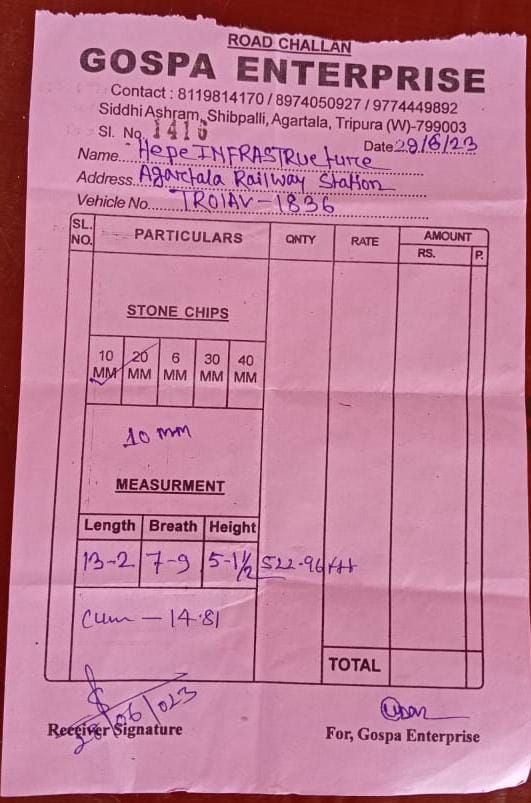 ROAD CHALLAN
GOSPA ENTERPRISE
Contact : 8119814170 / 8974050927 / 9774449892
Siddhi Ashram, Shibpalli, Agartala, Tripura (W)-799003
Sl. No. 1410 Date 28/6/23
Name Hepe INFRASTRUcture
Address Agartala Railway Station
Vehicle No. TR01AV-1836
SL. NO. PARTICULARS QNTY RATE AMOUNT
RS. P.
STONE CHIPS
10 MM 20 MM 6 MM 30 MM 40 MM
10 mm
MEASURMENT
Length Breath Height
13-2 7-9 5-1½ 522.96 fft
Cum - 14.81
TOTAL
28/06/023
Receiver Signature For, Gospa Enterprise